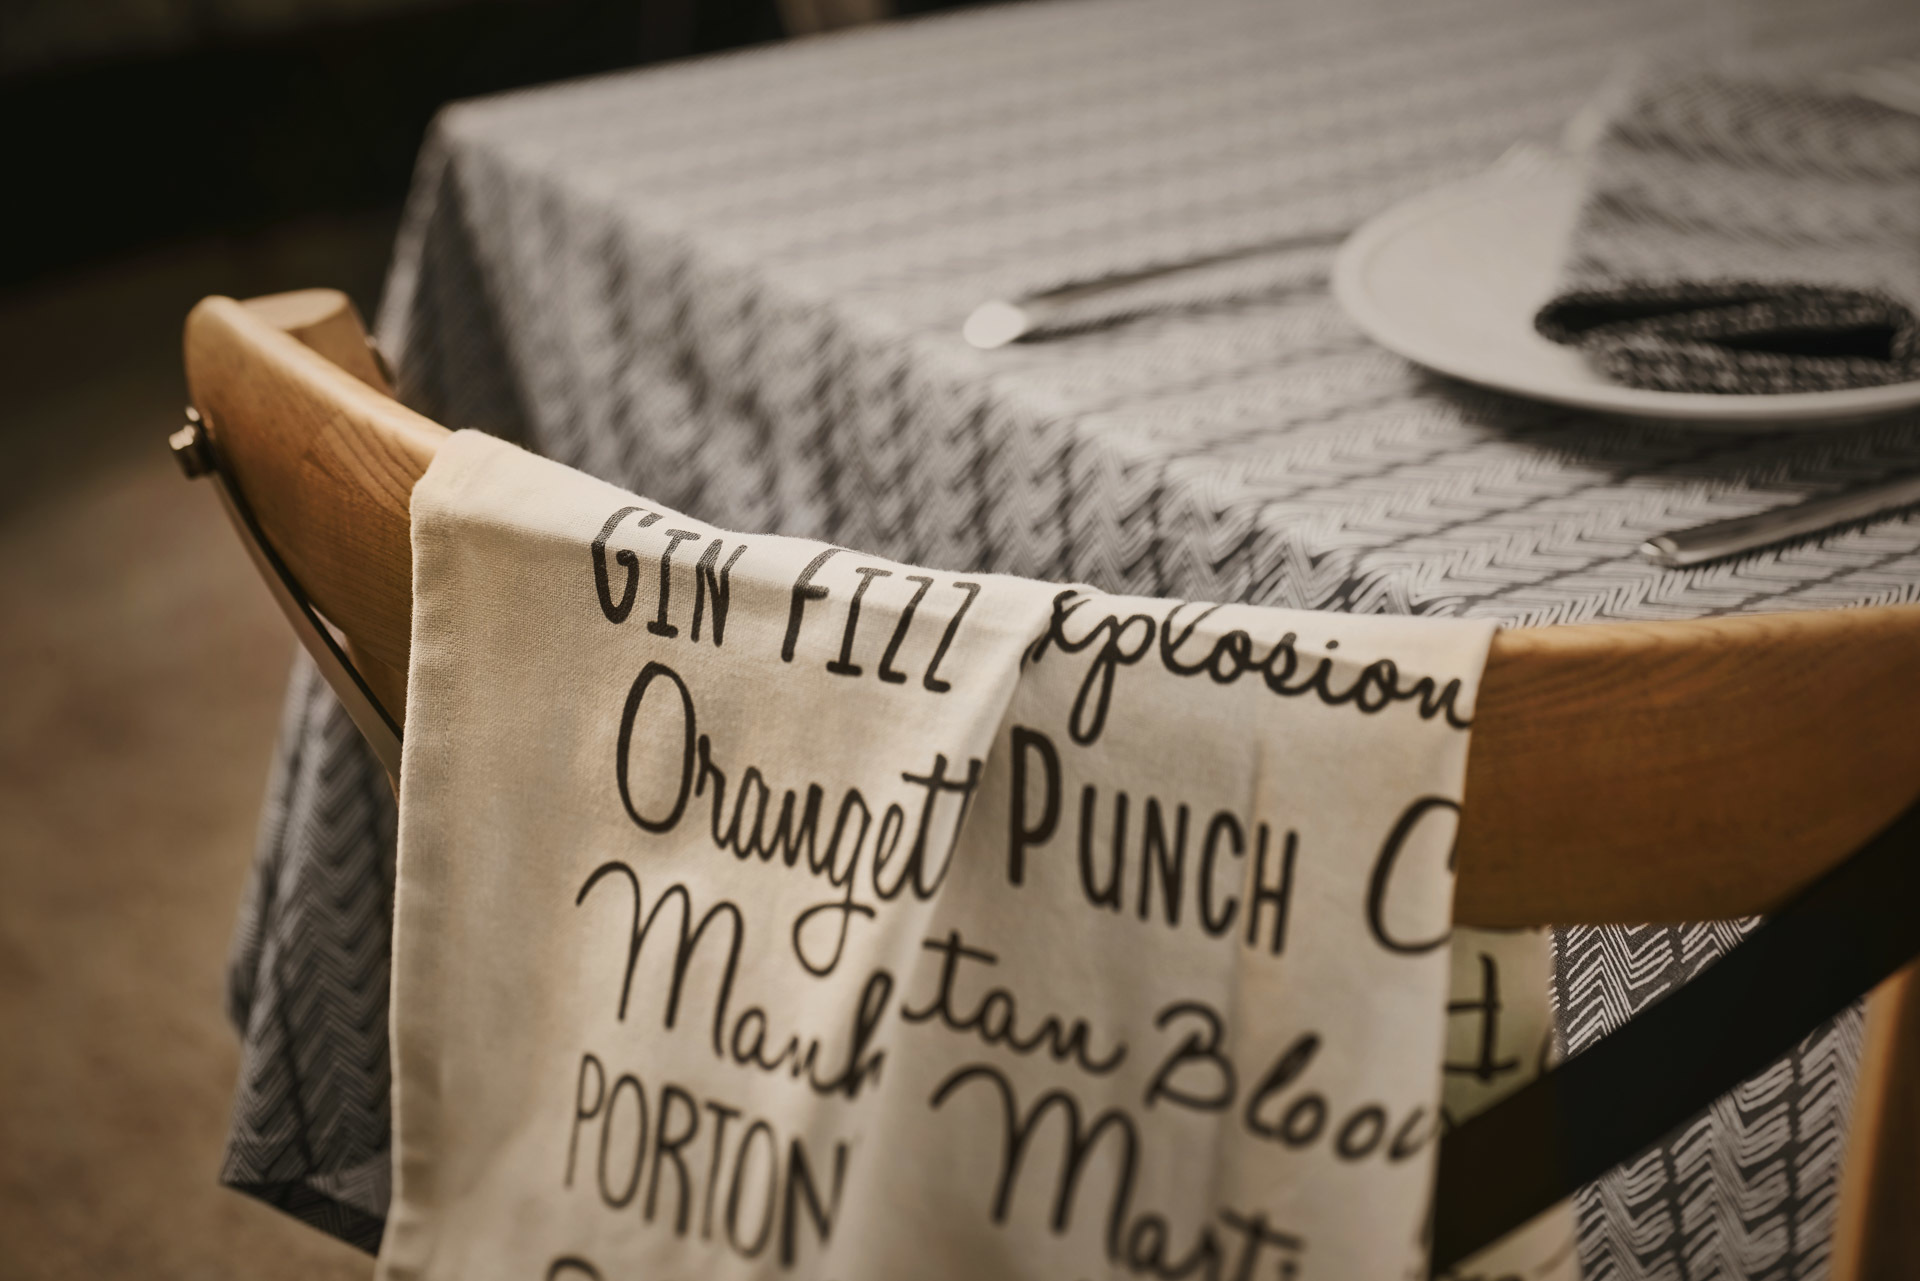 GIN FIZZ xplosion
Orangett PUNCH C
Manh tan Bloo
PORTON Marti